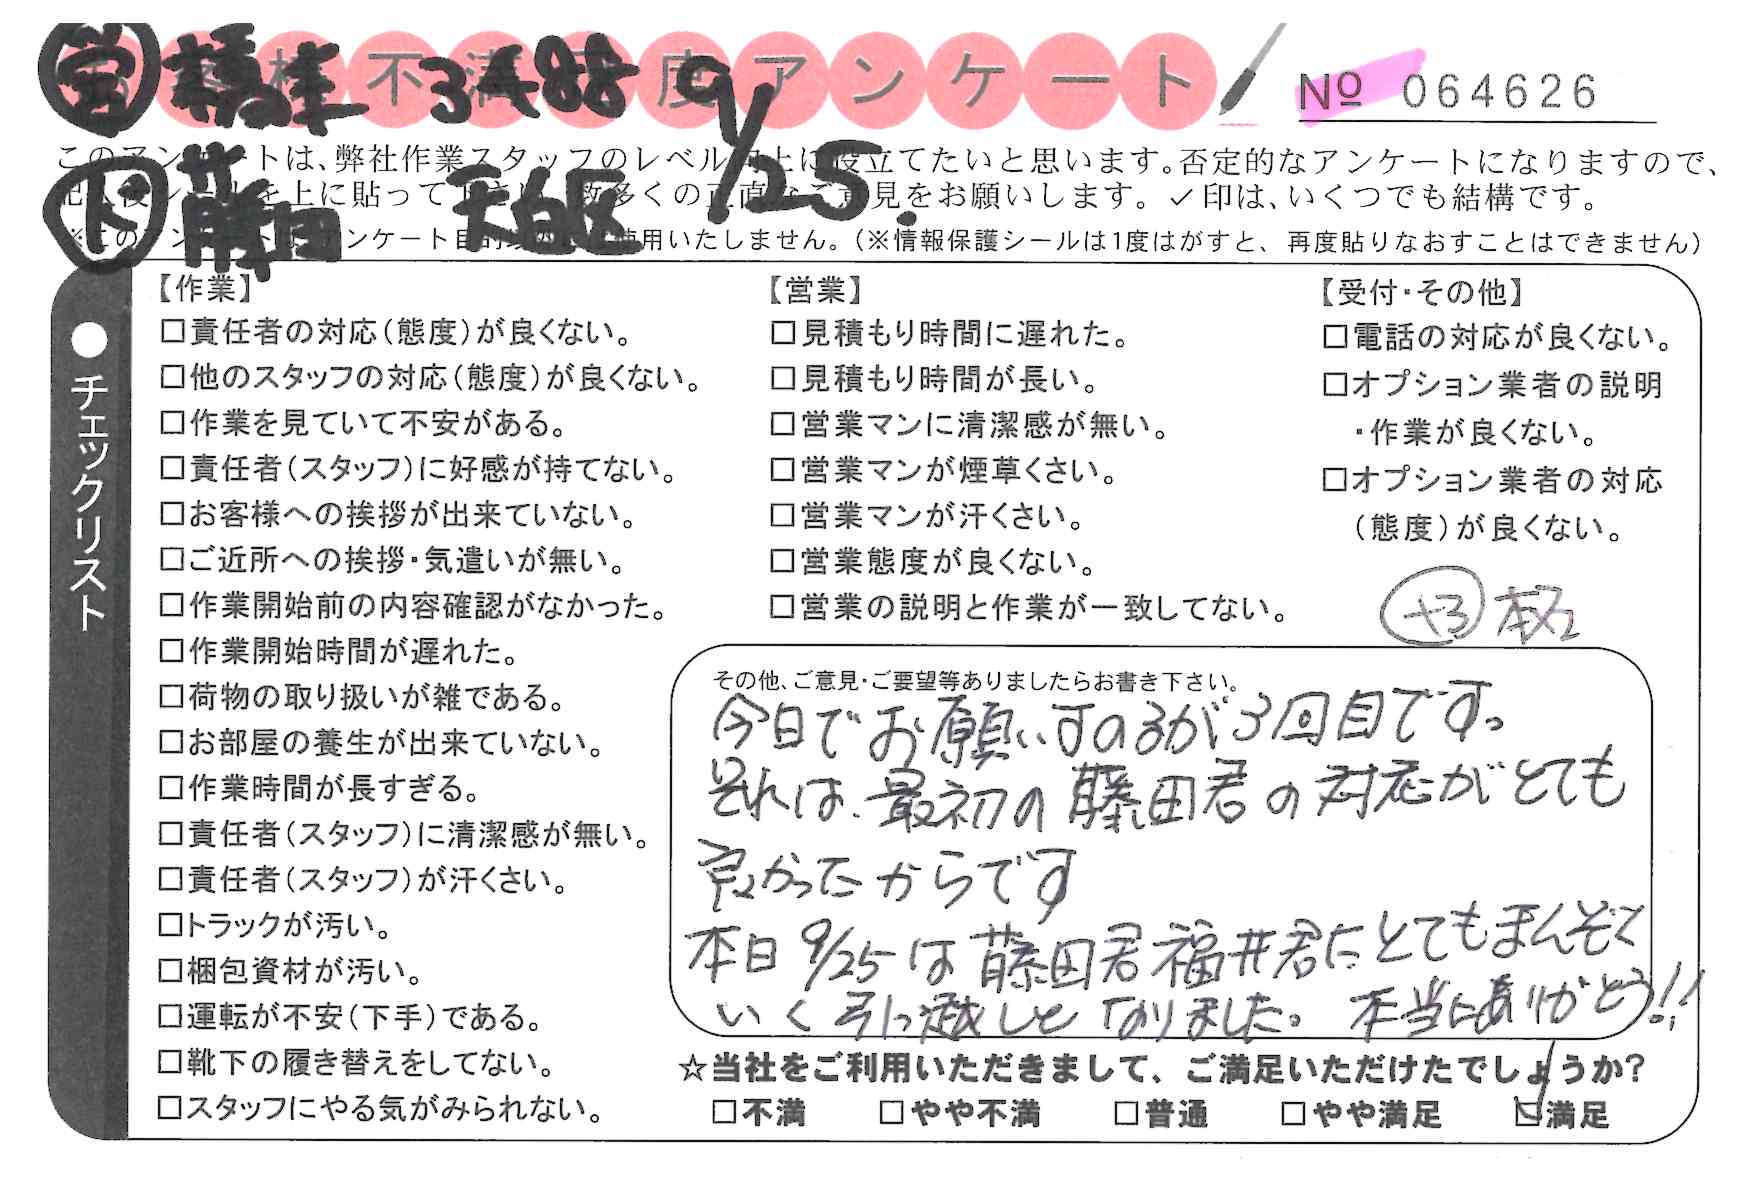 営 橋本 3488 9/25.
お客様不満足度アンケート
№ 064626
このアンケートは、弊社作業スタッフのレベル向上に役立てたいと思います。否定的なアンケートになりますので、
記入後シールを上に貼って下さい。数多くの正直なご意見をお願いします。✓印は、いくつでも結構です。
ト 藤田 天白区
※このアンケートは、アンケート目的以外には使用いたしません。(※情報保護シールは1度はがすと、再度貼りなおすことはできません)
●チェックリスト
【作業】
□責任者の対応(態度)が良くない。
□他のスタッフの対応(態度)が良くない。
□作業を見ていて不安がある。
□責任者(スタッフ)に好感が持てない。
□お客様への挨拶が出来ていない。
□ご近所への挨拶・気遣いが無い。
□作業開始前の内容確認がなかった。
□作業開始時間が遅れた。
□荷物の取り扱いが雑である。
□お部屋の養生が出来ていない。
□作業時間が長すぎる。
□責任者(スタッフ)に清潔感が無い。
□責任者(スタッフ)が汗くさい。
□トラックが汚い。
□梱包資材が汚い。
□運転が不安(下手)である。
□靴下の履き替えをしてない。
□スタッフにやる気がみられない。
【営業】
□見積もり時間に遅れた。
□見積もり時間が長い。
□営業マンに清潔感が無い。
□営業マンが煙草くさい。
□営業マンが汗くさい。
□営業態度が良くない。
□営業の説明と作業が一致してない。
【受付・その他】
□電話の対応が良くない。
□オプション業者の説明
・作業が良くない。
□オプション業者の対応
(態度)が良くない。
+3
その他、ご意見・ご要望等ありましたらお書き下さい。
今日でお願いすのるが3回目です。
それは、最初の藤田君の対応がとても
良かったからです
本日9/25は藤田君福井君にとてもまんぞく
いく引っ越しとなりました。本当にありがとう!!
☆当社をご利用いただきまして、ご満足いただけたでしょうか?
□不満 □やや不満 □普通 □やや満足 ☑満足